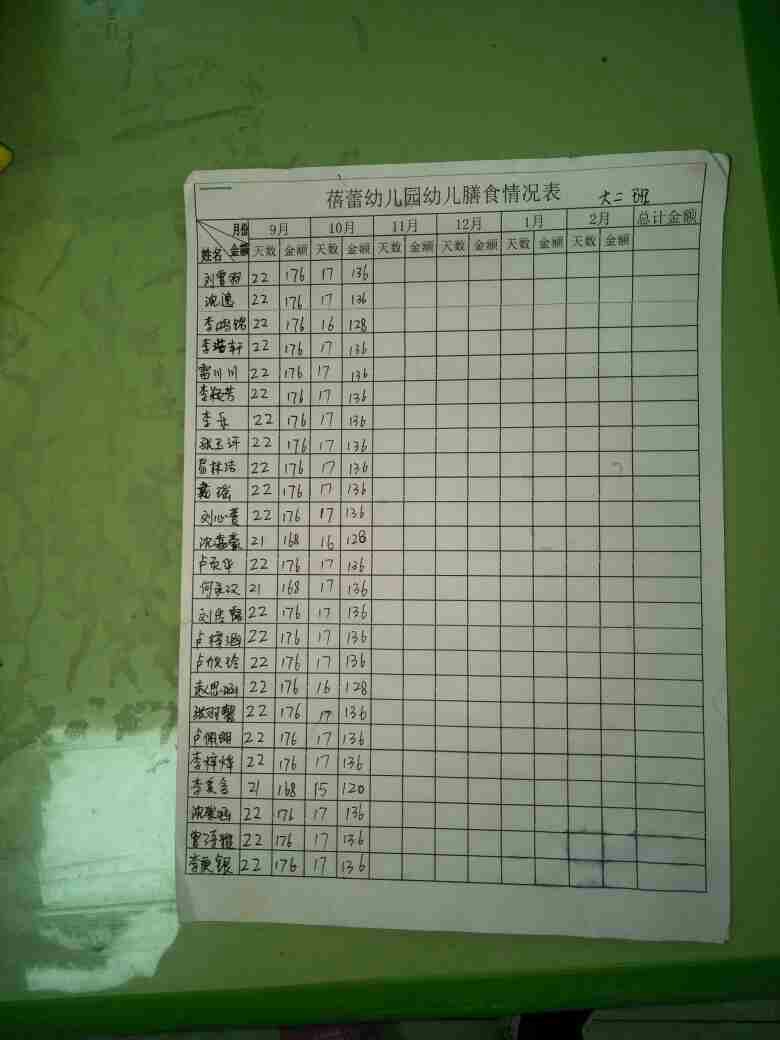 蓓蕾幼儿园幼儿膳食情况表 大二班
月份 9月 10月 11月 12月 1月 2月 总计金额
姓名 金额 天数 金额 天数 金额 天数 金额 天数 金额 天数 金额 天数 金额
22 176 17 136
沈 22 176 17 136
李鸿铭 22 176 16 128
李浩轩 22 176 17 136
雷川川 22 176 17 136
李筱芳 22 176 17 136
李 22 176 17 136
张玉评 22 176 17 136
林洁 22 176 17 136
瑶 22 176 17 136
刘心 22 176 17 136
沈嘉豪 21 168 16 128
卢 华 22 176 17 136
何 汉 21 168 17 136
刘 22 176 17 136
卢梓涵 22 176 17 136
卢欣玲 22 176 17 136
赵思涵 22 176 16 128
张羽馨 22 176 17 136
卢佩 22 176 17 136
李梓烽 22 176 17 136
李美含 21 168 15 120
沈 涵 22 176 17 136
曾 22 176 17 136
李 银 22 176 17 136